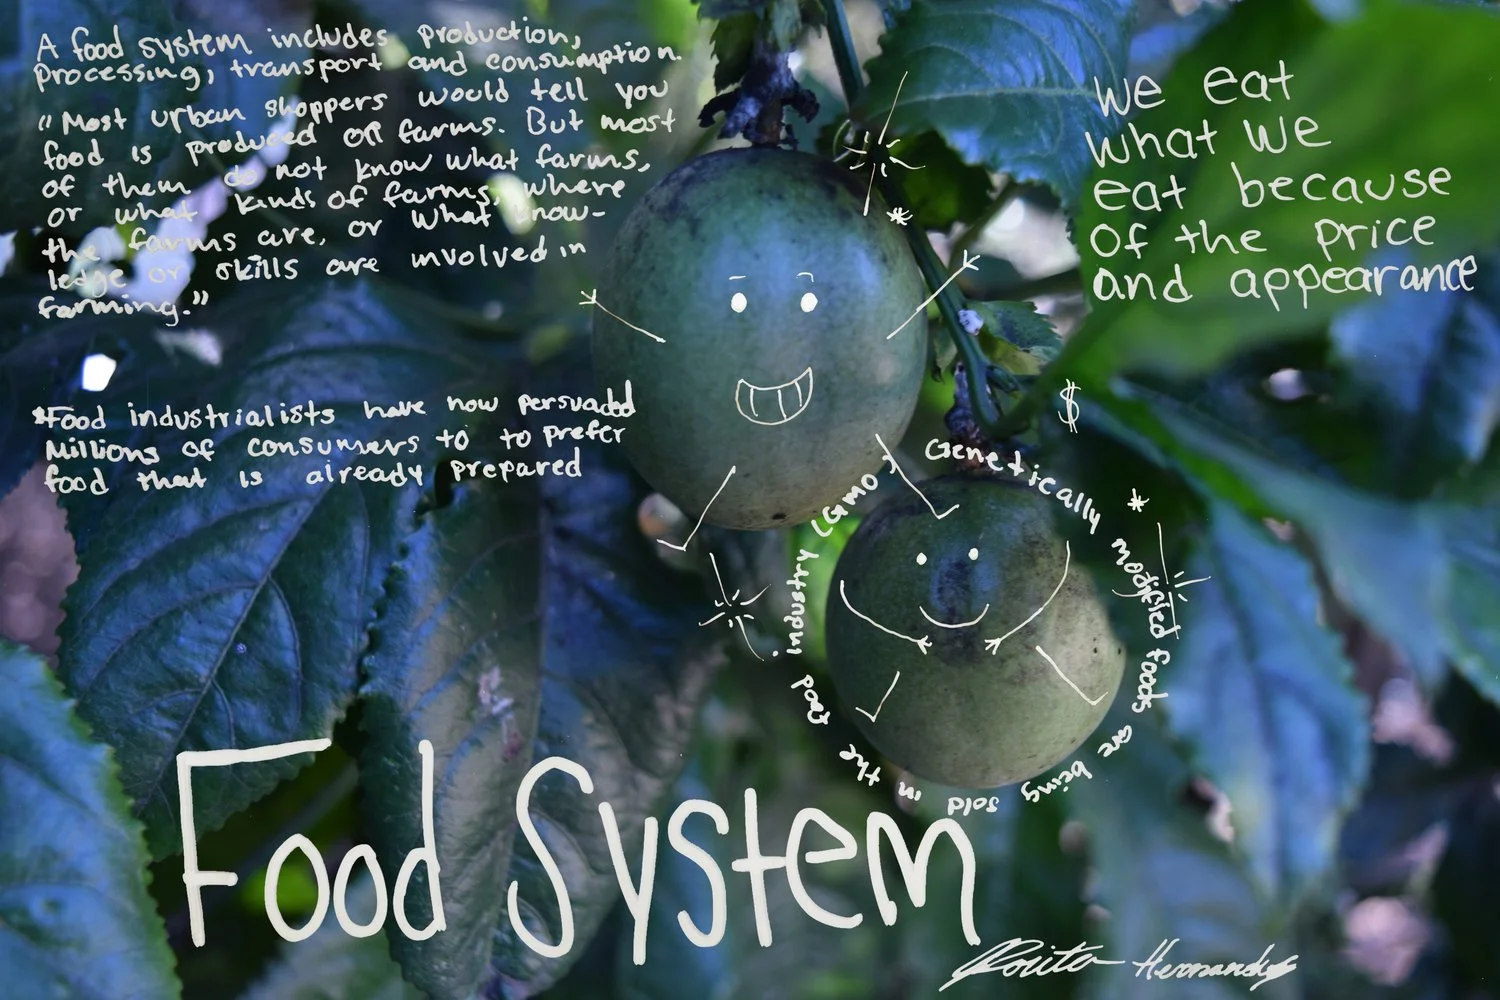 A food system includes production,
processing, transport and consumption.
"Most urban shoppers would tell you
food is produced on farms. But most
of them do not know what farms,
or what kinds of farms, where
the farms are, or what know-
ledge or skills are involved in
farming."
*Food industrialists have now persuaded
Millions of consumers to to prefer
food that is already prepared
we eat
what we
eat because
of the price
and appearance
$
Genetically modified foods are being sold in the food industry (GMO)
Food System
Rosita Hernandez